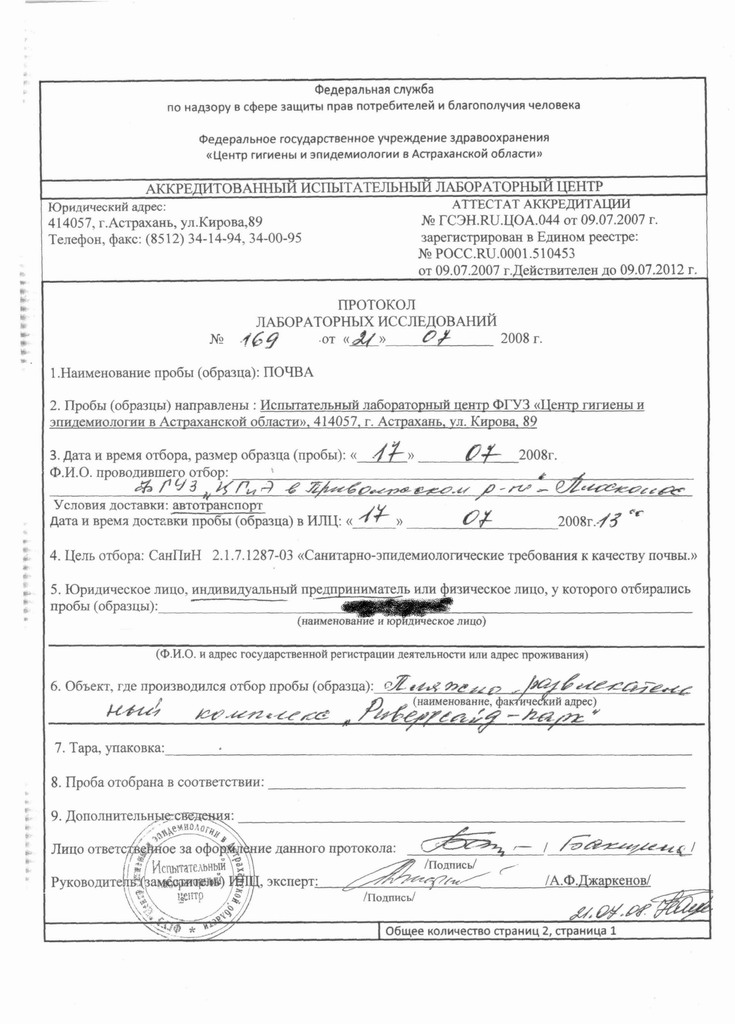 Федеральная служба
по надзору в сфере защиты прав потребителей и благополучия человека
Федеральное государственное учреждение здравоохранения
«Центр гигиены и эпидемиологии в Астраханской области»
АККРЕДИТОВАННЫЙ ИСПЫТАТЕЛЬНЫЙ ЛАБОРАТОРНЫЙ ЦЕНТР
Юридический адрес:
414057, г.Астрахань, ул.Кирова,89
Телефон, факс: (8512) 34-14-94, 34-00-95
АТТЕСТАТ АККРЕДИТАЦИИ
№ ГСЭН.RU.ЦОА.044 от 09.07.2007 г.
зарегистрирован в Едином реестре:
№ РОСС.RU.0001.510453
от 09.07.2007 г.Действителен до 09.07.2012 г.
ПРОТОКОЛ
ЛАБОРАТОРНЫХ ИССЛЕДОВАНИЙ
№ 169 от «21» 07 2008 г.
1.Наименование пробы (образца): ПОЧВА
2. Пробы (образцы) направлены : Испытательный лабораторный центр ФГУЗ «Центр гигиены и
эпидемиологии в Астраханской области», 414057, г. Астрахань, ул. Кирова, 89
3. Дата и время отбора, размер образца (пробы): «17» 07 2008г.
Ф.И.О. проводившего отбор:
ФГУЗ „ЦГиЭ в Приволжском р-не"-
Условия доставки: автотранспорт
Дата и время доставки пробы (образца) в ИЛЦ: «17» 07 2008г. 13 00
4. Цель отбора: СанПиН 2.1.7.1287-03 «Санитарно-эпидемиологические требования к качеству почвы.»
5. Юридическое лицо, индивидуальный предприниматель или физическое лицо, у которого отбирались
пробы (образцы):
(наименование и юридическое лицо)
(Ф.И.О. и адрес государственной регистрации деятельности или адрес проживания)
6. Объект, где производился отбор пробы (образца): Пляжно развлекатель
(наименование, фактический адрес)
ный комплекс „Риверсайд-парк"
7. Тара, упаковка:
8. Проба отобрана в соответствии:
9. Дополнительные сведения:
Лицо ответственное за оформление данного протокола:
/Подпись/
Руководитель (заместитель) ИЛЦ, эксперт: /А.Ф.Джаркенов/
/Подпись/
Испытательный
лабораторный
центр
21.07.08
Общее количество страниц 2, страница 1